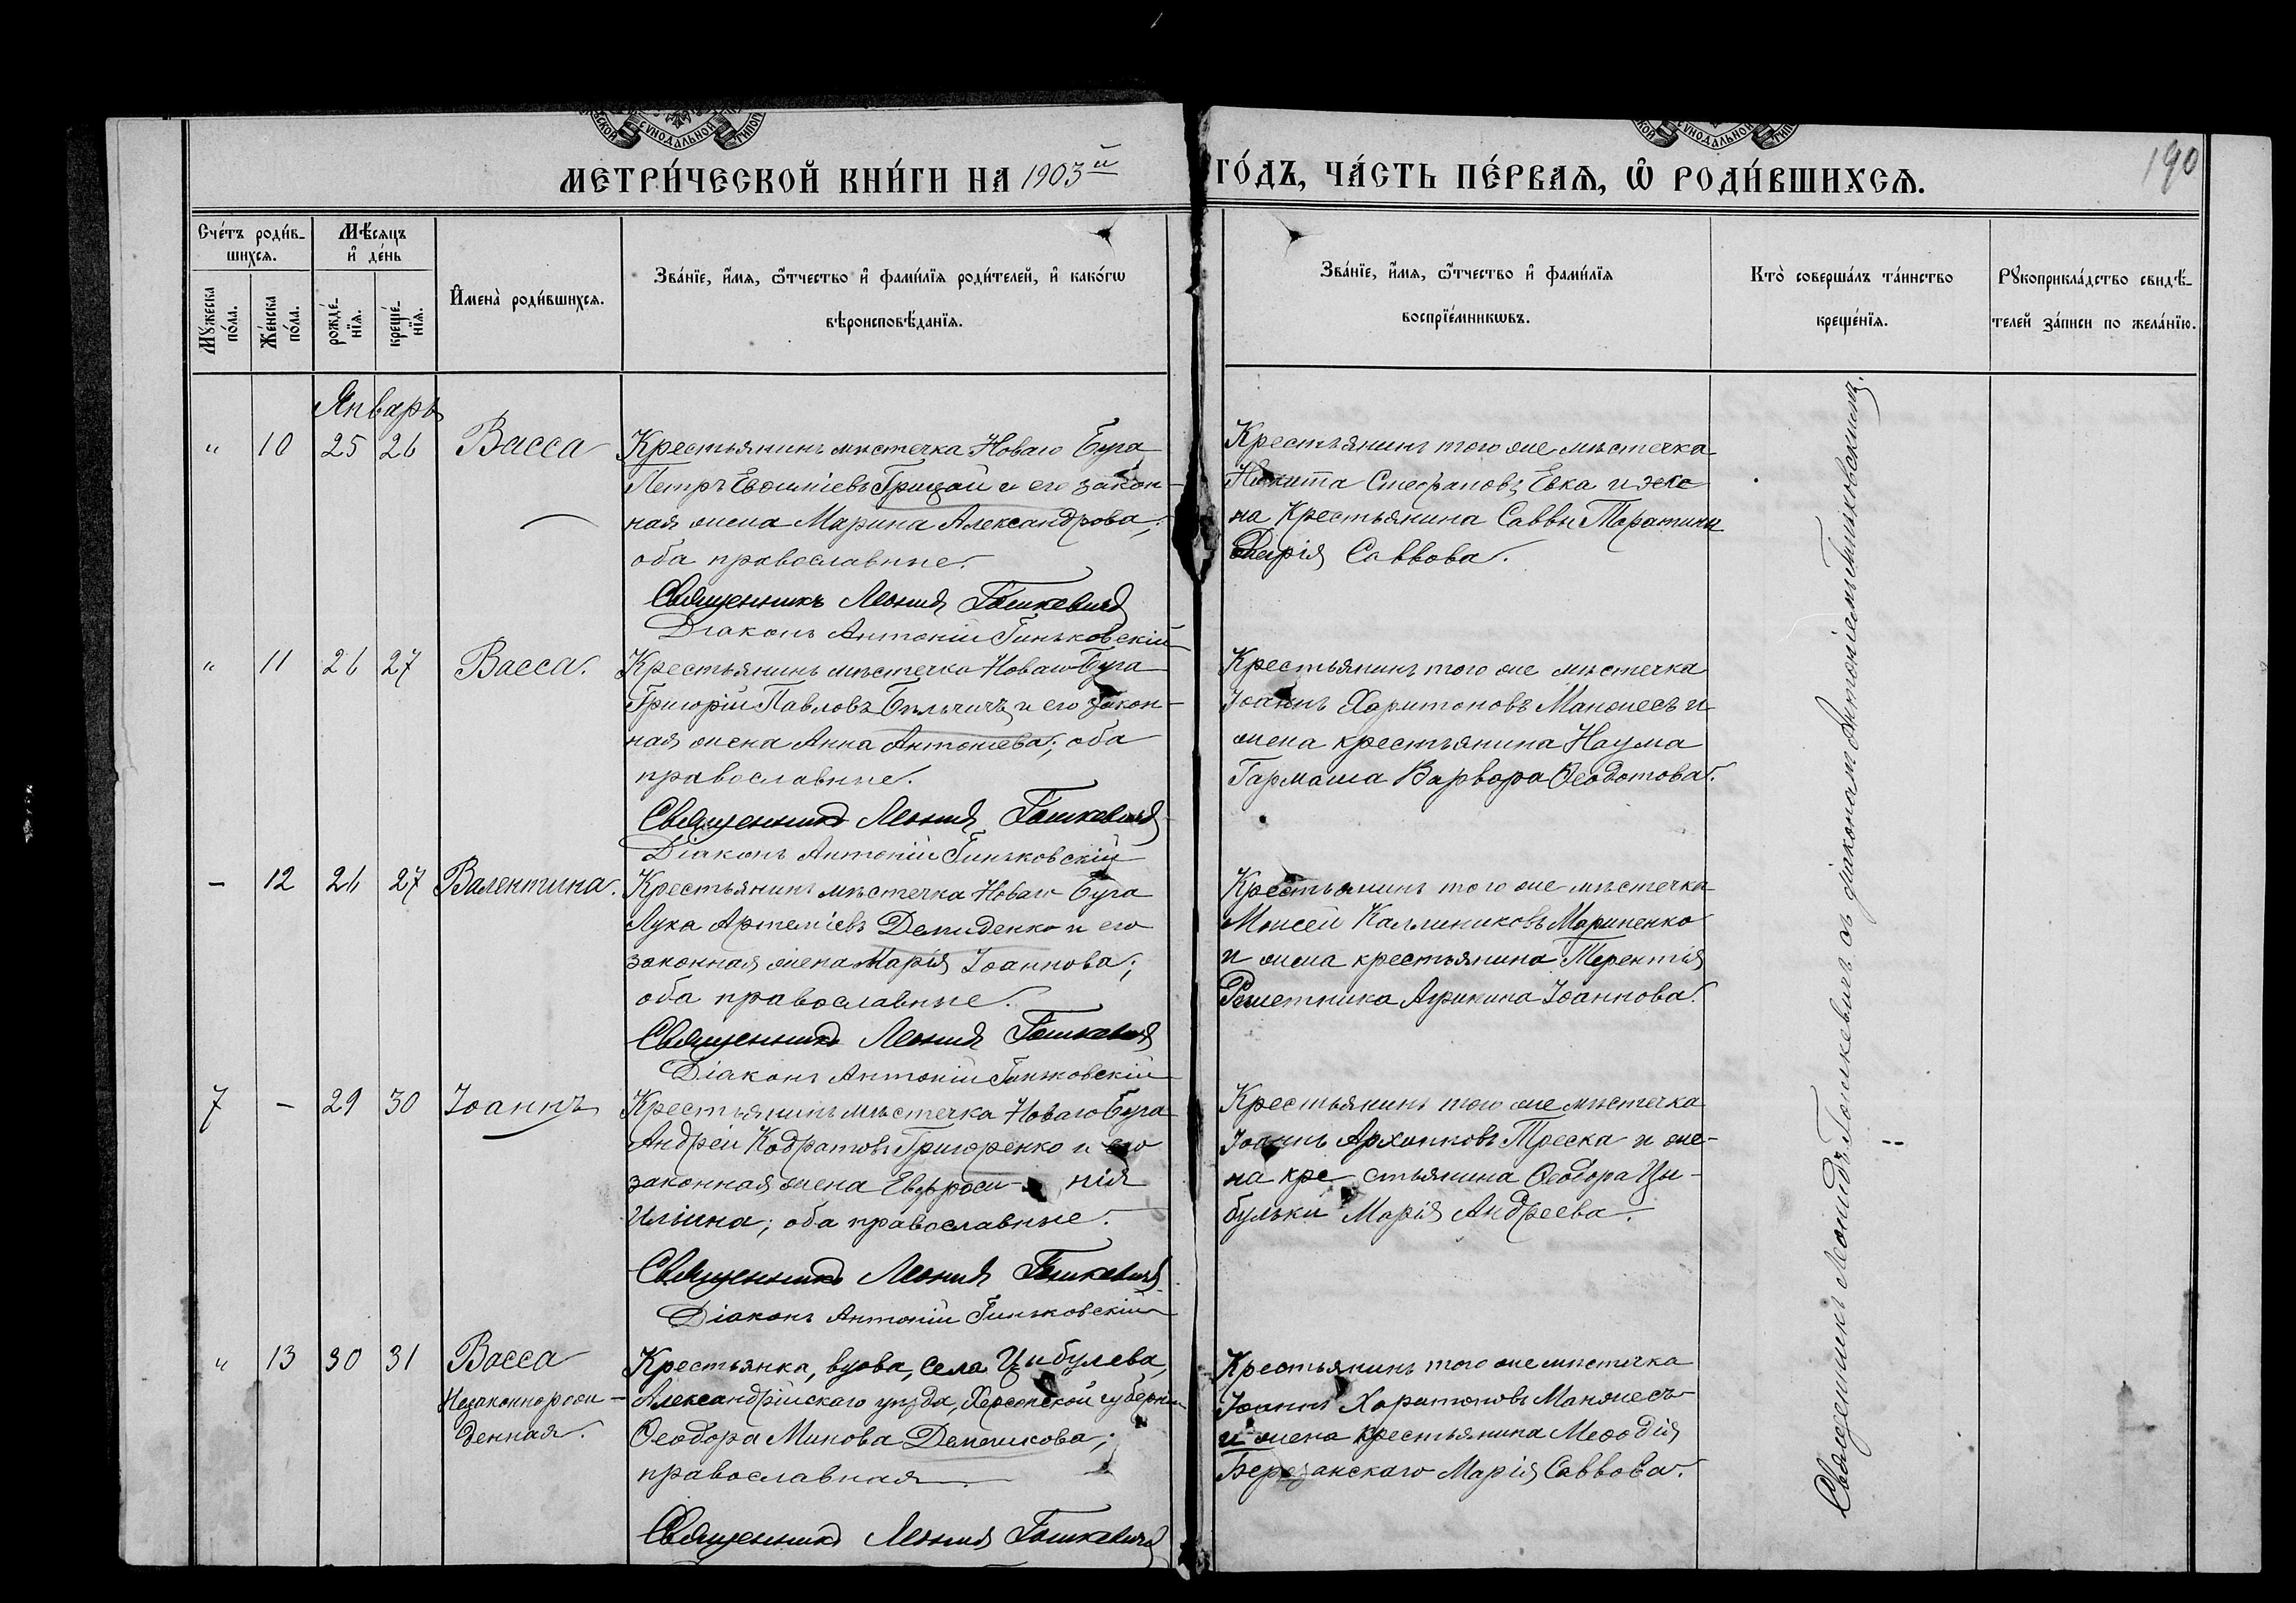 СѴНОДАЛЬНОЙ
СѴНОДАЛЬНОЙ
МЕТРИ́ЧЕСКОЙ КНИ́ГИ НА 1903й ГО́ДЪ, ЧА́СТЬ ПЕ́РВАѦ, Ѽ РОДИ́ВШИХСѦ.
190
Сче́тъ роди́в-
шихсѧ.
Мѣ́сѧцъ
и҆ де́нь
Мꙋ́жеска по́ла.
Же́нска по́ла.
рожде́-
нїѧ.
креще́-
нїѧ.
И҆мена̀ роди́вшихсѧ.
Зва́нїе, и҆́мѧ, ѻ҆́тчество и҆ фами́лїѧ роди́телей, и҆ како́гѡ
вѣроисповѣ́данїѧ.
Зва́нїе, и҆́мѧ, ѻ҆́тчество и҆ фами́лїѧ
воспрїе́мникѡвъ.
Кто̀ соверша́лъ та́инство
креще́нїѧ.
Рꙋкоприкла́дство свидѣ́-
телей за́писи по жела́нїю.
Январь
" 10 25 26 Васса
Крестьянинъ мѣстечка Новаго Буга
Петръ Евѳиміевъ Грицай и его закон-
ная жена Марина Александрова;
оба православные.
Священникъ Леонид Гошкевичъ
Діаконъ Антоній Гиньковскій
Крестьянинъ того же мѣстечка
Никита Стефановъ Евка и же
на Крестьянина Саввы
Дарія Саввова.
" 11 26 27 Васса.
Крестьянинъ мѣстечка Новаго Буга
Григорій Павловъ и его закон-
ная жена Анна Антоніева; оба
православные.
Священникъ Леонид Гошкевичъ
Діаконъ Антоній Гиньковскій
Крестьянинъ того же мѣстечка
Іоаннъ Харитоновъ Манжесъ и
жена крестьянина Наума
Гармаша Варвара Ѳеодотова.
- 12 26 27 Валентина.
Крестьянинъ мѣстечка Новаго Буга
Лука Артеміевъ Демиденко и его
законная жена Марія Іоаннова;
оба православные.
Священникъ Леонид Гошкевичъ
Діаконъ Антоній Гиньковскій
Крестьянинъ того же мѣстечка
Моисей Каллиниковъ Мариненко
и жена крестьянина Терентія
Решетника Іоаннова.
7 - 29 30 Іоаннъ
Крестьянинъ мѣстечка Новаго Буга
Андрей Кодратовъ Григоренко и его
законная жена Евфроси- нія
Ильина; оба православные.
Священникъ Леонид Гошкевичъ
Діаконъ Антоній Гиньковскій
Крестьянинъ того же мѣстечка
Іоаннъ Архиповъ Треска и же-
на кре стьянина Ѳеодора Цы-
бульки Марія Андреева.
" 13 30 31 Васса
Незаконнорож-
денная.
Крестьянка, вдова, села Цыбулева,
Александрійскаго уѣзда, Херсонской губерніи
Ѳеодора Минова Демешкова;
православная
Священникъ Леонид Гошкевичъ
Крестьянинъ того же мѣстечка
Іоаннъ Харитоновъ Манжесъ
и жена крестьянина Меѳодія
Березанскаго Марія Саввова.
Священникъ Леонидъ Гошкевичъ съ діакономъ Антоніемъ Гиньковскимъ.